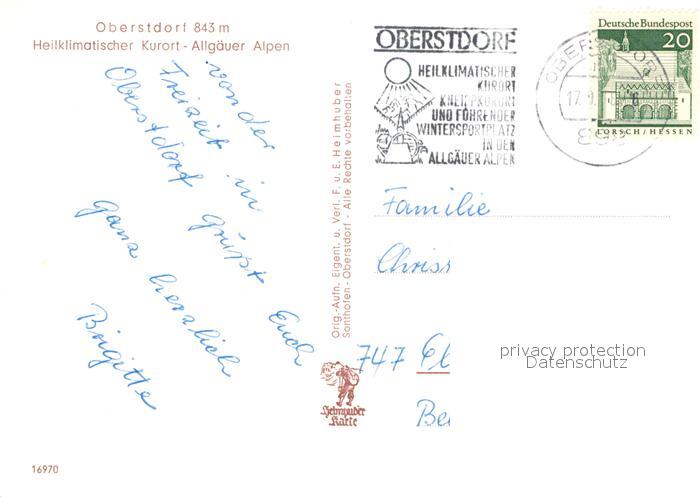 Oberstdorf 843 m
Heilklimatischer Kurort - Allgäuer Alpen
von der
Freizeit in
Oberstdorf grüßt Euch
ganz herzlich
Brigitte
Orig.-Aufn. Eigent. u. Verl. F. u. E. Heimhuber
Sonthofen - Oberstdorf - Alle Rechte vorbehalten
Heimhuber
Karte
16970
OBERSTDORF
HEILKLIMATISCHER
KURORT
KNEIPPKURORT
UND FÜHRENDER
WINTERSPORTPLATZ
IN DEN
ALLGÄUER ALPEN
OBERSTDORF
17.9.
898
Deutsche Bundespost
20
LORSCH/HESSEN
Familie
Chris
747
Be
privacy protection
Datenschutz